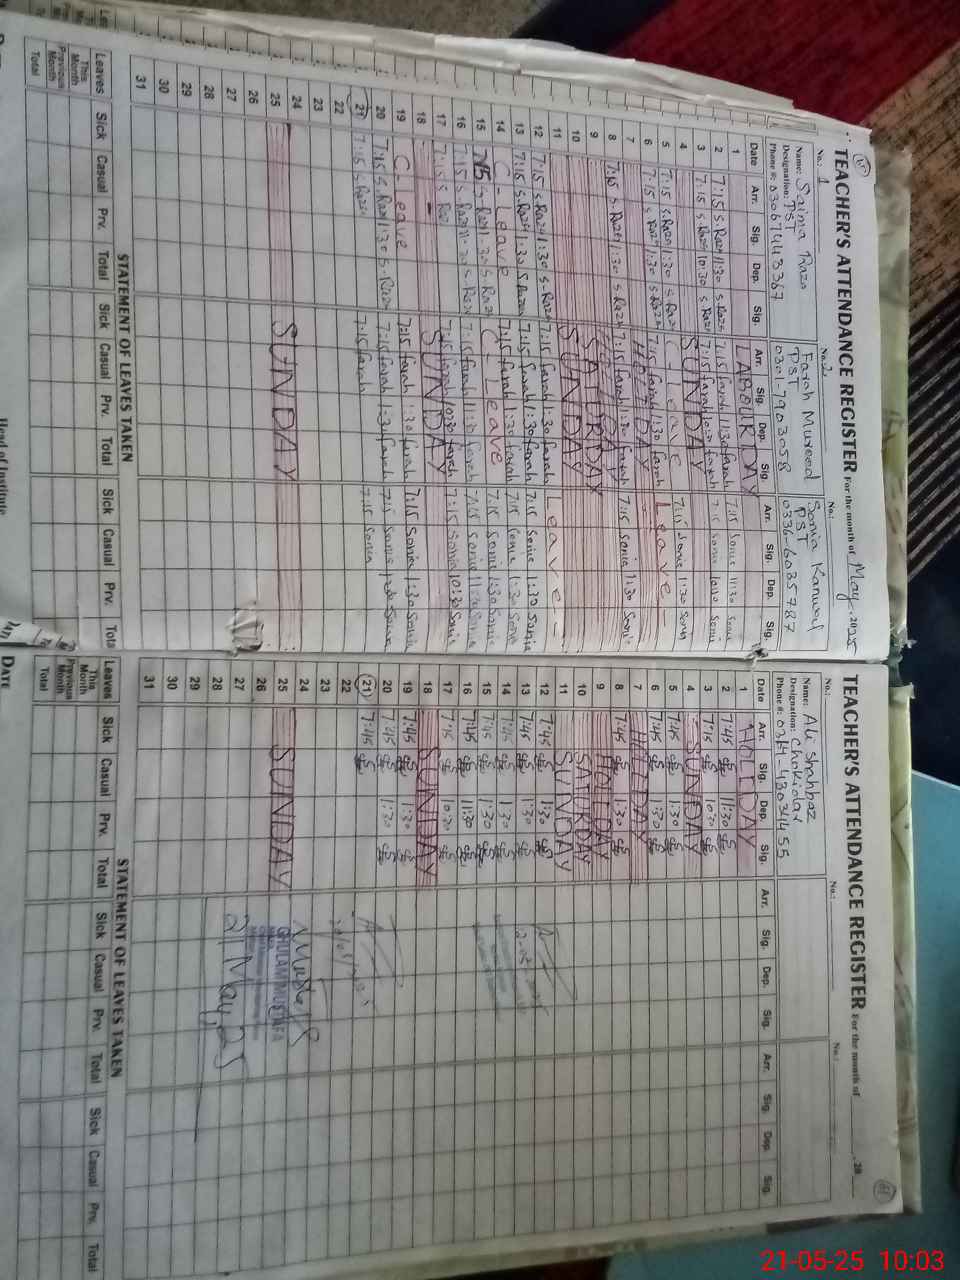 TEACHER'S ATTENDANCE REGISTER For the month of May, 2025
No.: 1
No. 2
No.:
Name: Saima Raza
Farah Mureed
Sonia Kanwal
Designation: PST
PST
PST
Phone #: 03067443367
0301-7903058
0336-6035787
Date Arr. Sig. Dep. Sig. Arr. Sig. Dep. Sig. Arr. Sig. Dep. Sig.
1 LABOUR DAY
2 7:15 S.Raza 11:30 S.Raza 7:15 farah 11:30 farah 7:15 Sonia 11:30 Sonia
3 7:15 S.Raza 10:30 S.Raza 7:15 farah farah 7:15 Sonia Sonia
4 SUNDAY
5 7:15 S.Raza 1:30 S.Raza C-Leave 7:15 Sonia 1:30 Sonia
6 7:15 S.Raza 1:30 S.Raza 7:15 farah 1:30 farah Leave
7 HOLIDAY
8 7:15 S.Raza 1:30 S.Raza 7:15 farah 1:30 farah 7:15 Sonia 1:30 Sonia
9 HOLIDAY
10 SATURDAY
11 SUNDAY
12 7:15 S.Raza 1:30 S.Raza 7:15 farah 1:30 farah Leave
13 7:15 S.Raza 1:30 S.Raza 7:15 farah 1:30 farah 7:15 Sonia 1:30 Sonia
14 C-Leave 7:15 farah 1:30 farah 7:15 Sonia 1:30 Sonia
15 7:15 S.Raza 1:30 S.Raza C-Leave 7:15 Sonia 1:30 Sonia
16 7:15 S.Raza S.Raza 7:15 farah 11:30 farah 7:15 Sonia 11:30 Sonia
17 7:15 S.Raza 7:15 farah 10:30 farah 7:15 Sonia 10:30 Sonia
18 SUNDAY
19 C-Leave 7:15 farah 1:30 farah 7:15 Sonia 1:30 Sonia
20 7:15 S.Raza 1:30 S.Raza 7:15 farah 1:30 farah 7:15 Sonia 1:30 Sonia
21 7:15 S.Raza 7:15 farah 7:15 Sonia
22
23
24
25 SUNDAY
26
27
28
29
30
31
STATEMENT OF LEAVES TAKEN
Leaves Sick Casual Prv. Total Sick Casual Prv. Total Sick Casual Prv. Total
This Month
Previous Month
Total
Head of Institute
TEACHER'S ATTENDANCE REGISTER For the month of , 20
No.:
No.:
No.:
Name: Ali Shahbaz
Designation: Chokidar
Phone #:
Date Arr. Sig. Dep. Sig. Arr. Sig. Dep. Sig. Arr. Sig. Dep. Sig.
1 HOLIDAY
2 7:45 11:30
3 7:15 10:30
4 SUNDAY
5 7:45 1:30
6 7:45 1:30
7 HOLIDAY
8 7:45 1:30
9 HOLIDAY
10 SATURDAY
11 SUNDAY
12 7:45 1:30
13 7:45 1:30
14 7:45 1:30
15 7:45 1:30
16 7:45 11:30
17 7:45 10:30
18 SUNDAY
19 7:45 1:30
20 7:45 1:30
21 7:45
22
23
24
25 SUNDAY
26
27
28
29
30
31
GHULAM MUSTAFA
21 May, 25
STATEMENT OF LEAVES TAKEN
Leaves Sick Casual Prv. Total Sick Casual Prv. Total Sick Casual Prv. Total
This Month
Previous Month
Total
DATE
21-05-25 10:03